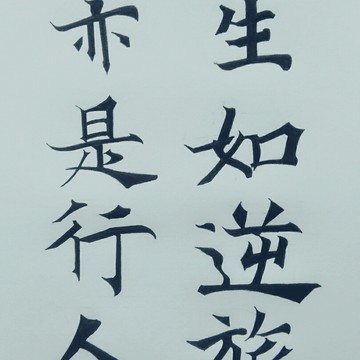 生如逆旅
亦是行人